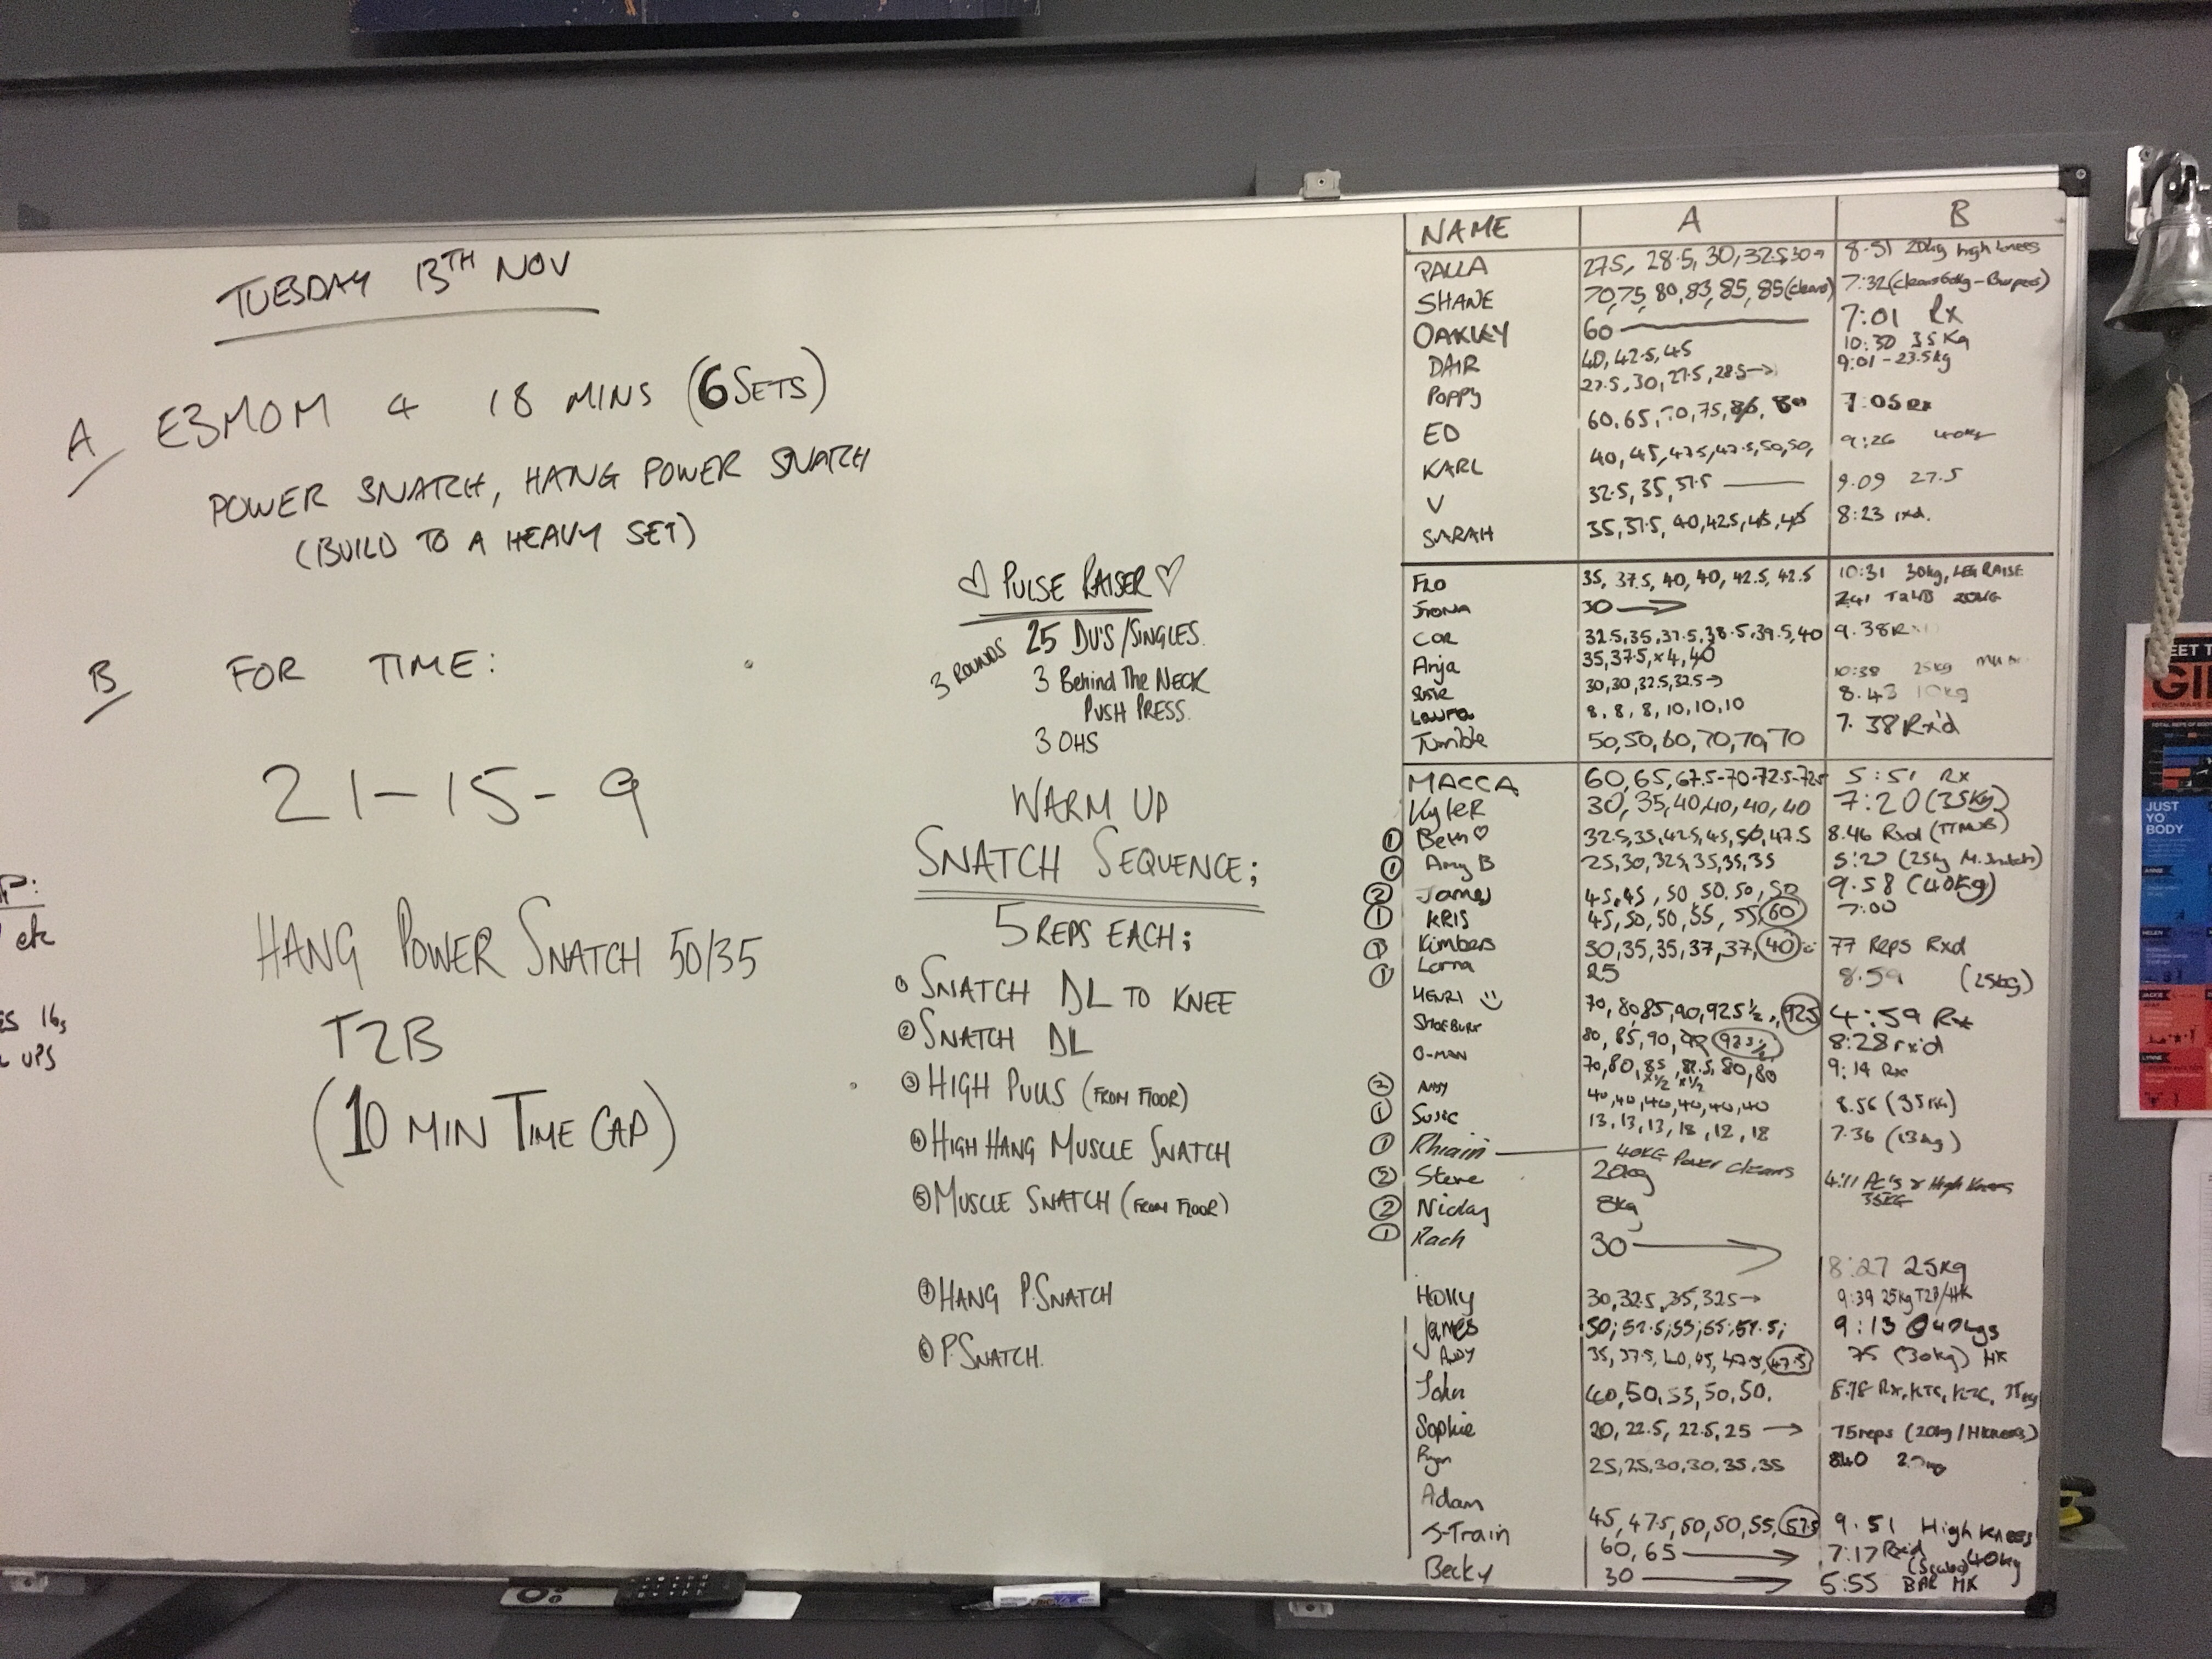 TUESDAY 13TH NOV
A E3MOM 4 18 MINS (6 SETS)
POWER SNATCH, HANG POWER SNATCH
(BUILD TO A HEAVY SET)
B FOR TIME:
21-15-9
HANG POWER SNATCH 50/35
T2B
(10 MIN TIME CAP)
♡ PULSE RAISER ♡
3 ROUNDS 25 DU'S/SINGLES.
3 Behind The NECK
PUSH PRESS.
3 OHS
WARM UP
SNATCH SEQUENCE;
5 REPS EACH;
① SNATCH DL TO KNEE
② SNATCH DL
③ HIGH PULLS (FROM FLOOR)
④ HIGH HANG MUSCLE SNATCH
⑤ MUSCLE SNATCH (FROM FLOOR)
⑦ HANG P.SNATCH
⑥ P.SNATCH.
NAME A B
PALLA 27.5, 28.5, 30, 32.5, 30→ 8:51 20kg high knees
SHANE 70,75, 80, 83, 85, 85 (cleans) 7:32 (cleans 60kg - Burpees)
OAKLEY 60 7:01 Rx
DAIR 40, 42.5, 45 10:30 35Kg
Poppy 27.5, 30, 27.5, 28.5→ 9:01 - 23.5kg
ED 60, 65, 70, 75, 80 7:05 Rx
KARL 40, 45, 47.5, 47.5, 50, 50, 9:26 40kg
V 32.5, 35, 37.5 9.09 27.5
SARAH 35, 37.5, 40, 42.5, 45, 45 8:23 rxd.
FLO 35, 37.5, 40, 40, 42.5, 42.5 10:31 30kg, LEG RAISE
Fiona 30 → 20KG
COR 32.5, 35, 37.5, 38.5, 39.5, 40 9.38 R
Anja 35, 37.5, x4, 40
Susie 30, 30, 32.5, 32.5→ 10:38 25kg
Laura 8, 8, 8, 10, 10, 10 8.43 10kg
Tumble 50, 50, 60, 70, 70, 70 7.38 Rx'd
MACCA 60, 65, 67.5-70-72.5-72.5 5:51 Rx
Kyler 30, 35, 40, 40, 40, 40 7:20 (35Kg)
① Beth♡ 32.5, 35, 42.5, 45, 50, 47.5 8.46 Rxd
① Amy B 25, 30, 32.5, 35, 35, 35 5:27 (25kg M.Snatch)
② James 45, 45, 50, 50, 50, 50 9.58 (40Kg)
① KRIS 45, 50, 50, 55, 55, 60 7:00
① Kimbers 30, 35, 35, 37, 37, 40 77 Reps Rxd
① Lorna 25 8.59 (25kg)
HENRI 70, 80, 85, 90, 92.5½, 92.5 4:59 Rx
SHOEBURY 80, 85, 90, 92.5½ 8:28 rx'd
O-MAN 70, 80, 85, 87.5, 80, 80 9:19 Rx
x½ x½
② ANDY 40, 40, 40, 40, 40, 40 8.56 (35KG)
① Susie 13, 13, 13, 18, 12, 18 7.36 (13kg)
① Rhian 40KG Power Cleans
② Steve 20kg 4:11 PC's & High Knees
35KG
② Nicky 8kg
① Rach 30 →
8:27 25kg
Holly 30, 32.5, 35, 32.5→ 9:39 25kg T2B/HK
James 50; 52.5; 55; 55; 57.5; 9:13 @ 40kgs
ANDY 35, 37.5, 40, 45, 47.5, 47.5 75 (30kg) HK
John 40, 50, 55, 50, 50.
Sophie 20, 22.5, 22.5, 25 → 75reps (20kg/HKnees)
Ryan 25, 25, 30, 30, 35, 35 8:40
Adam
J-Train 45, 47.5, 50, 50, 55, 57.5 9.51 High Knees
60, 65 → 7:17 Rx'd (Scaled) 40kg
Becky 30 → 5:55 BAR HK
P:
etc
16s
UPS
GI
JUST
YO
BODY